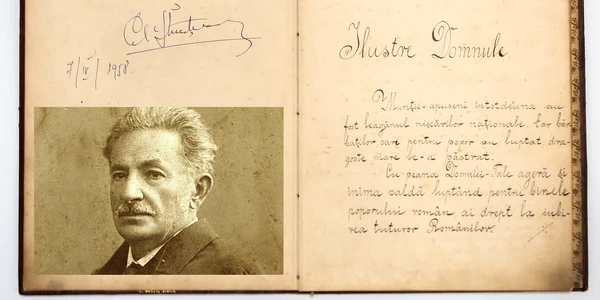 7/IV/1958
Ilustre Domnule
Munții-apuseni întotdeuna au
fost leagănul mișcărilor naționale. Ear băr-
baților care pentru popor au luptat dra-
goste mare le-a păstrat.
Cu peana Domniei-Tale ageră și
inima caldă luptând pentru binele
poporului român ai drept la iubi-
rea tuturor Românilor.